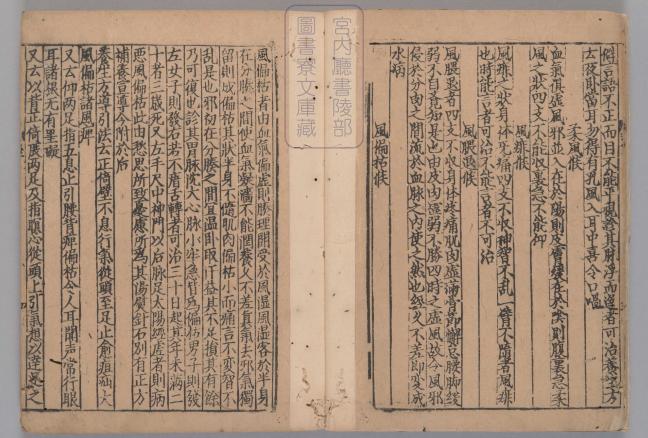 宮内廳書陵部
圖書寮文庫藏
僻言語不正而目不能平視診其脉浮而遲者可治養生方
云夜臥當耳勿得有孔風入耳中喜令口喎
柔風候
血氣俱虛風邪並入在於陽則皮膚緩在於陰則腹裏急柔
風之狀四支不能收裏急不能仰
風痱候
風痱之狀身体无痛四支不收神智不亂一臂不隨者風痱
也時能言者可治不能言者不可治
風腲退候
風腲退者四支不收身体疼痛肌肉虛滿骨節懈怠腰脚緩
弱不自覺知是也由皮肉虛弱不勝四時之虛風故令風邪
侵於分肉之間流於血脉之内使之然也經久不差即變成
水病
風偏枯候
風偏枯者由血氣偏虛則腠理開受於風濕風濕客於半身
在分腠之間使血氣凝濇不能潤養久不差真氣去邪氣獨
留則成偏枯其狀半身不隨肌肉偏枯小而痛言不變智不
亂是也邪初在分腠之間宜溫卧取汗益其不足損其有餘
乃可復也診其胃脉沉大心脉小牢急皆為偏枯男子則發
左女子則發右若不瘖舌轉者可治三十日起其年未滿二
十者三歲死又左手尺中神門以後脉足太陽經虛者則病
惡風偏枯此由愁思所致憂慮所為其湯熨針石別有正方
補養宣導今附於后
養生方導引法云正倚壁不息行氣從頭至足止愈疽疝大
風偏枯諸風痹
又云仰兩足指五息止引腰背痹偏枯令人耳聞声常行眼
耳諸根无有罣礙
又云以背正倚展兩足及指瞑心從頭上引氣想以達足之